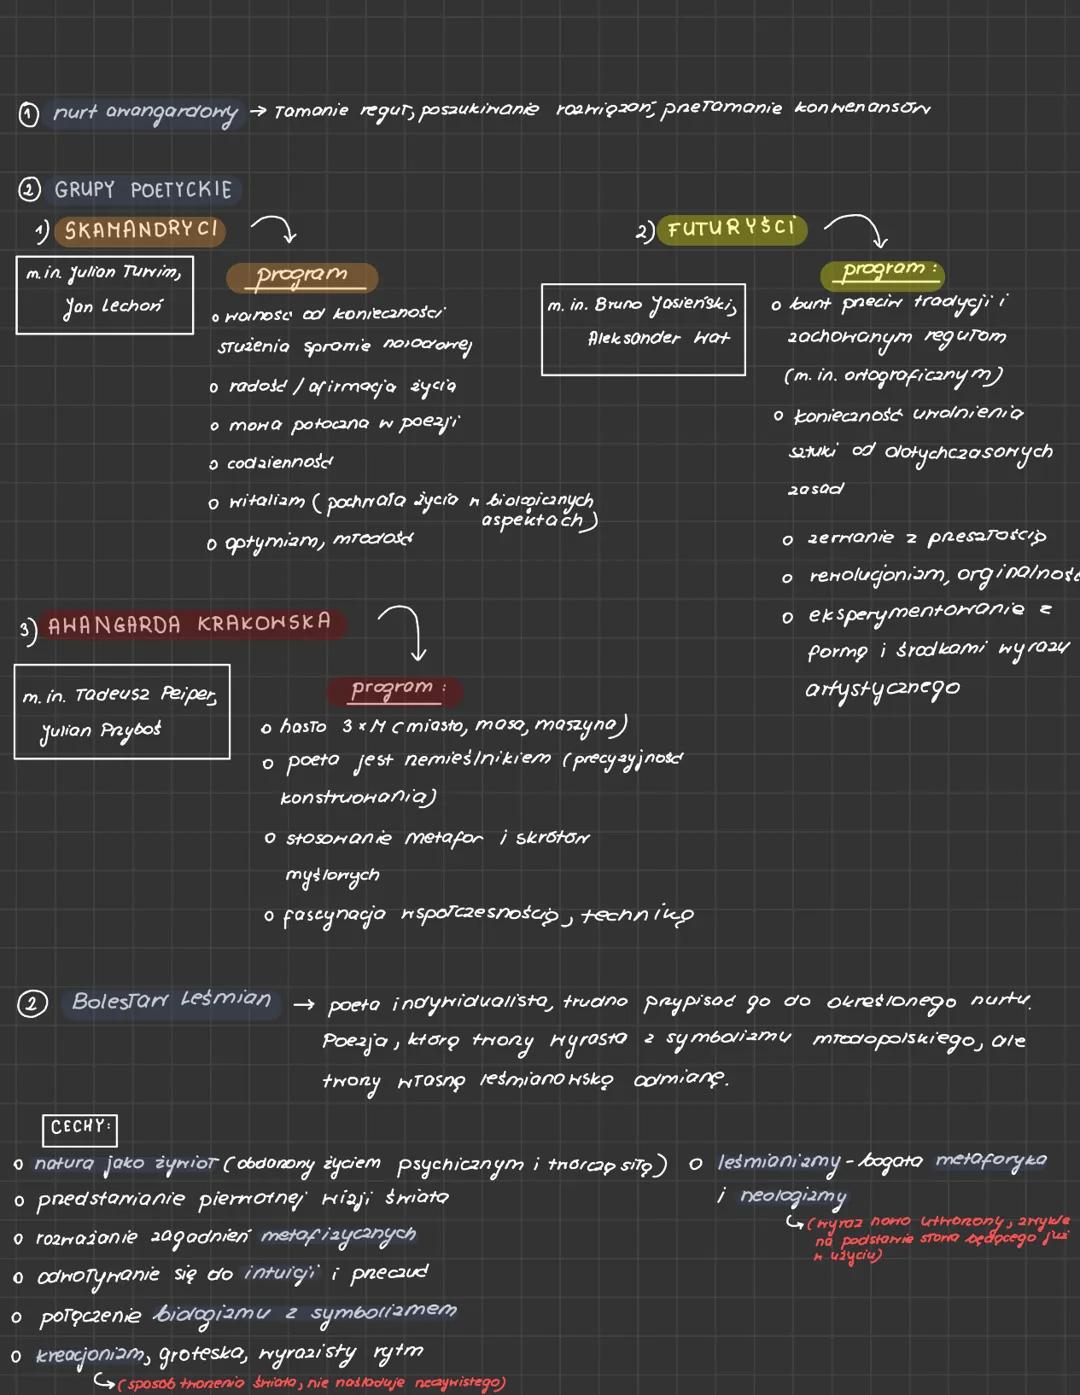 ① nurt awangardowy → łamanie reguł, poszukiwanie rozwiązań, przełamanie konwenansów
② GRUPY POETYCKIE
1) SKAMANDRYCI
m.in. Julian Tuwim,
Jan Lechoń
program
o wolność od konieczności
służenia sprawie narodowej
o radość / afirmacja życia
o mowa potoczna w poezji
o codzienność
o witalizm (pochwała życia w biologicznych
aspektach)
o optymizm, młodość
2) FUTURYŚCI
m. in. Bruno Jasieński,
Aleksander Wat
program:
o bunt przeciw tradycji i
zachowanym regułom
(m. in. ortograficznym)
o konieczność uwolnienia
sztuki od dotychczasowych
zasad
o zerwanie z przeszłością
o rewolucjonizm, orginalność
o eksperymentowanie z
formą i środkami wyrazu
artystycznego
3) AWANGARDA KRAKOWSKA
m. in. Tadeusz Peiper,
Julian Przyboś
program:
o hasło 3xM (miasto, masa, maszyna)
o poeta jest rzemieślnikiem (precyzyjność
konstruowania)
o stosowanie metafor i skrótów
myślowych
o fascynacja współczesnością, techniką
② Bolesław Leśmian → poeta indywidualista, trudno przypisać go do określonego nurtu.
Poezja, którą tworzy wyrasta z symbolizmu młodopolskiego, ale
tworzy własną leśmianowską odmianę.
CECHY:
o natura jako żywioł (obdarzony życiem psychicznym i twórczą siłą)
o przedstawianie pierwotnej wizji świata
o rozważanie zagadnień metafizycznych
o odwoływanie się do intuicji i przeczuć
o połączenie biologizmu z symbolizmem
o kreacjonizm, groteska, wyrazisty rytm
↳ (sposób tworzenia świata, nie naśladuje rzeczywistego)
o leśmianizmy - bogata metaforyka
i neologizmy
↳ (wyraz nowo utworzony, zwykle
na podstawie słowa będącego już
w użyciu)